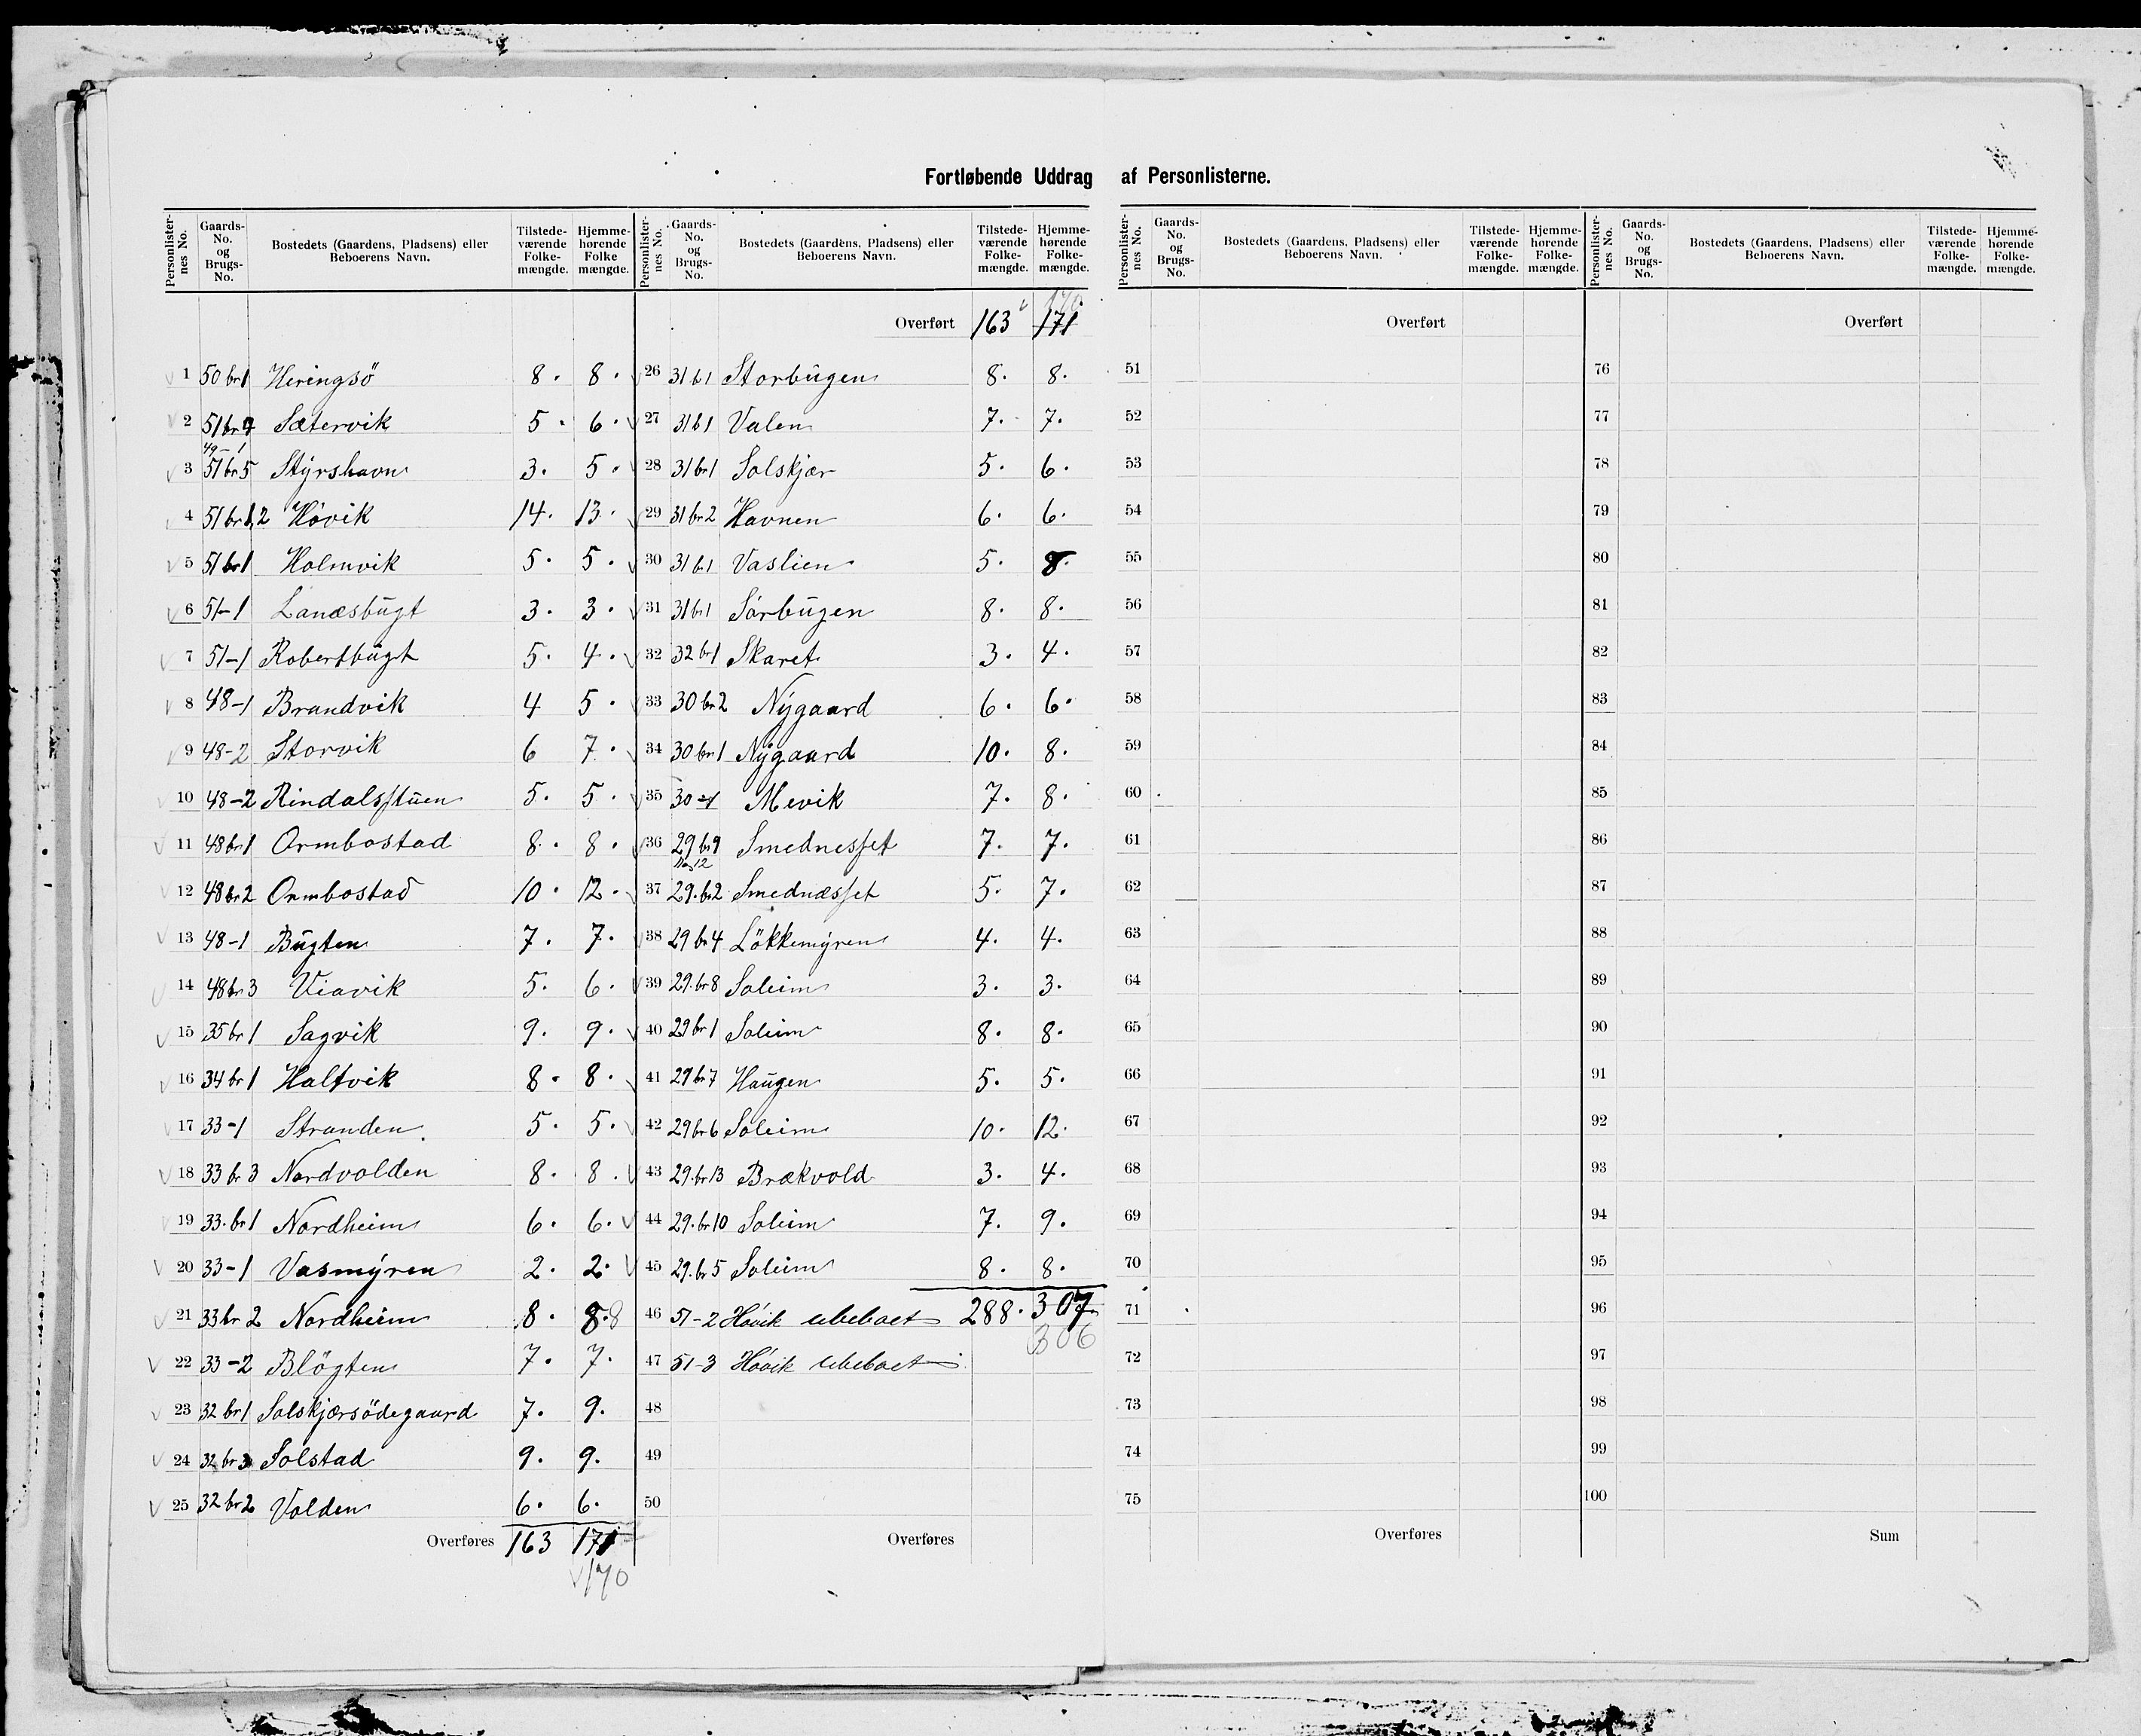 Fortløbende Uddrag af Personlisterne.
Personlister-nes No. Gaards-No. og Brugs-No. Bostedets (Gaardens, Pladsens) eller Beboerens Navn. Tilstede-værende Folke-mængde. Hjemme-hørende Folke mængde.
1 50 br 1 Heringsö 8. 8.
2 51 br 7 Sætervik 5. 6.
49-1
3 51 br 5 Styrshavn 3. 5.
4 51 br 1,2 Høvik 14. 13.
5 51 br 1 Holmvik 5. 5.
6 51-1 Lanæsbugt 3. 3.
7 51-1 Robertbugt 5. 4.
8 48-1 Brandvik 4 5.
9 48-2 Storvik 6 7.
10 48-2 Rindalsstuen 5. 5.
11 48 br 1 Ormbostad 8. 8.
12 48 br 2 Ormbostad 10. 12.
13 48-1 Bugten 7. 7.
14 48 br 3 Viavik 5. 6.
15 35 br 1 Sagvik 9. 9.
16 34 br 1 Haltvik 8. 8.
17 33-1 Stranden 5. 5.
18 33 br 3 Nordvolden 8. 8.
19 33. br 1 Nordheim 6. 6.
20 33-1 Vasmyren 2. 2.
21 33 br 2 Nordheim 8. 8. 8
22 33-2 Blögten 7. 7.
23 32 br 1 Solskjærsödegaard 7. 9.
24 32 br 3 Solstad 9. 9.
25 32 br 2 Volden 6. 6.
Overføres 163 171
170
Personlister-nes No. Gaards-No. og Brugs-No. Bostedets (Gaardens, Pladsens) eller Beboerens Navn. Tilstede-værende Folke-mængde. Hjemme-hørende Folke-mængde.
170
Overført 163 171
26 31 b 1 Storbugen 8. 8.
27 31 b 1 Valen 7. 7.
28 31 br 1 Solskjær 5. 6.
29 31 br 2 Havnen 6. 6.
30 31 b. 1 Vaslien 5. 8.
31 31 br 1 Sørbugen 8. 8.
32 32 br 1 Skaret 3. 4.
33 30 br 2 Nygaard 6. 6.
34 30 br 1 Nygaard 10. 8.
35 30-1 Mevik 7. 8.
36 29 br 9 Smednesset 7. 7.
37 29. br 2 Smednæsset 5. 7.
38 29 br 4 Lökkemyren 4. 4.
39 29. br 8 Soleim 3. 3.
40 29 br 1 Soleim 8. 8.
41 29 br 7 Haugen 5. 5.
42 29 br 6 Soleim 10. 12.
43 29. br 13 Brækvold 3. 4.
44 29. br 10 Soleim 7. 9.
45 29. br 5 Soleim 8. 8.
46 51-2 Høvik ubeboet 288. 307.
306
47 51-3 Høvik ubeboet
48
49
50
Overføres
Personlister-nes No. Gaards-No. og Brugs-No. Bostedets (Gaardens, Pladsens) eller Beboerens Navn. Tilstede-værende Folke-mængde. Hjemme-hørende Folke-mængde.
Overført
51
52
53
54
55
56
57
58
59
60
61
62
63
64
65
66
67
68
69
70
71
72
73
74
75
Overføres
Personlister-nes No. Gaards-No. og Brugs-No. Bostedets (Gaardens, Pladsens) eller Beboerens Navn. Tilstede-værende Folke-mængde. Hjemme-hørende Folke-mængde.
Overført
76
77
78
79
80
81
82
83
84
85
86
87
88
89
90
91
92
93
94
95
96
97
98
99
100
Sum